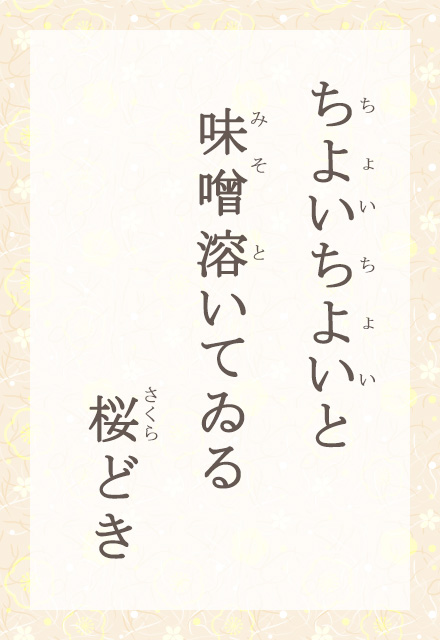 ちよいちよいと
ちょいちょい
味噌溶いてゐる
みそと
桜どき
さくら